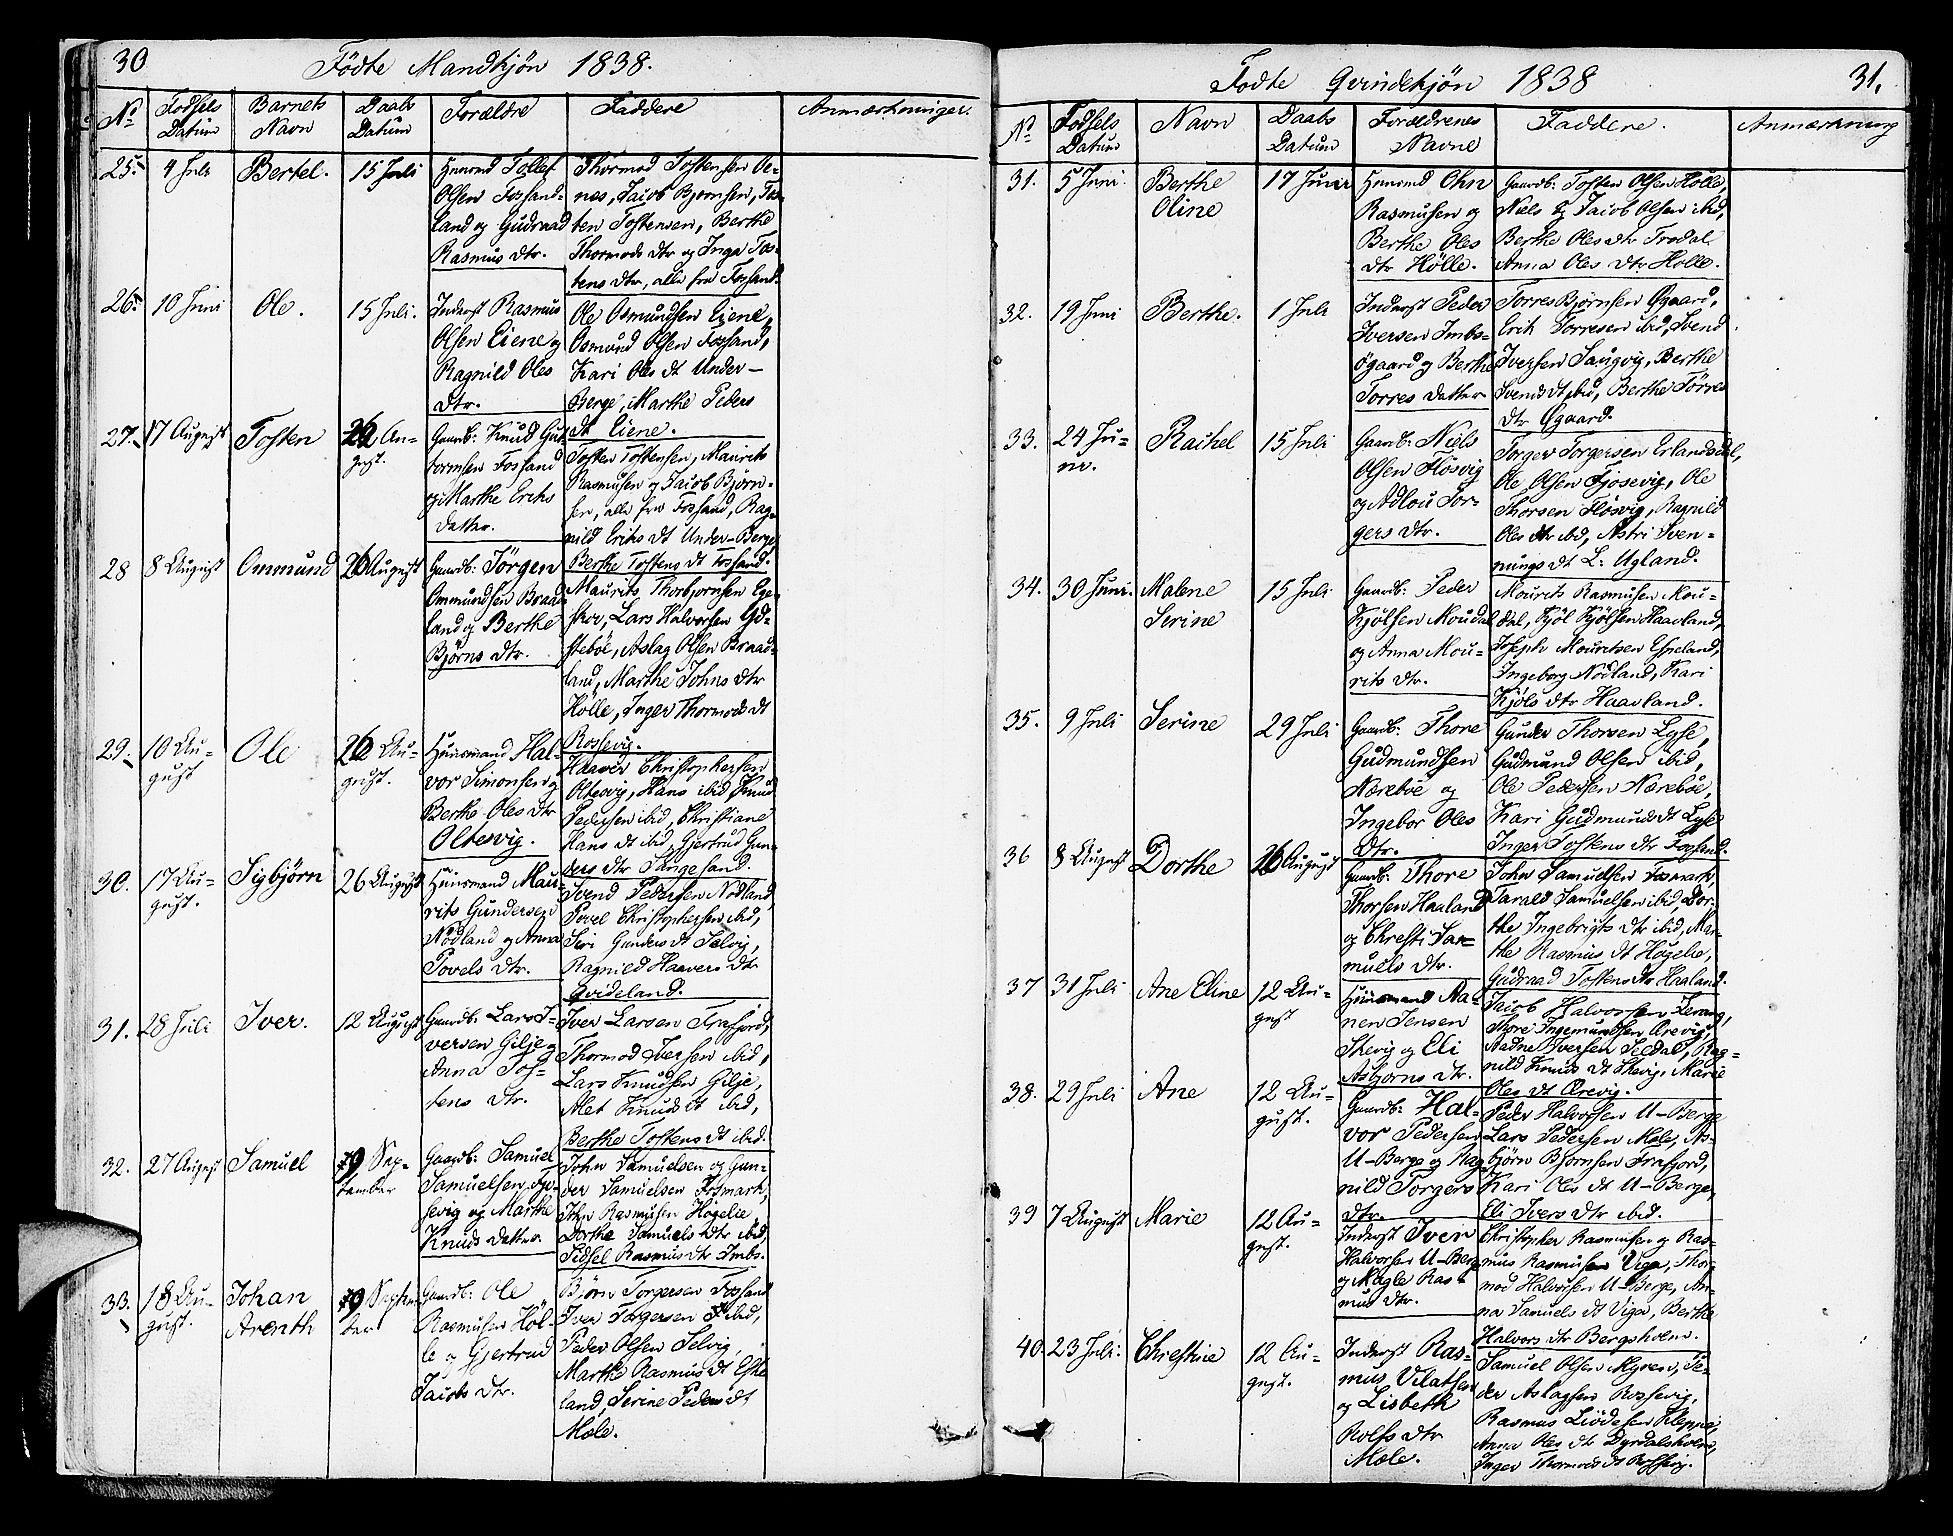 30
Födte Mandkjön 1838.
No
Fodsels Datum
Barnets Navn
Daabs Datum
Forældre
Faddere
Anmærkninger.
25.
4 Juli
Bertel.
15 Juli
Huusmd Tollef
Olsen Fossand-
land og Gudraad
Rasmus dtr.
Thormod Tostensen Oe-
nes, Jacob Bjornsen, Tos-
ten Tostensen, Berthe
Thormods dtr og Inga Tos-
tens dtr, alle fra Fossand.
26.
10 Juni
Ole.
15 Juli.
Inderst Rasmus
Olsen Eiene og
Ragnild Oles
dtr.
Ole Osmundsen Eiene,
Osmund Olsen Fossand,
Kari Oles dt Under-
Berge, Marthe Peders
dt Eiene.
27.
17 August
Tosten
26 Au-
gust.
Gaardb: Knud Gut-
tormsen Fossand
og Marthe Eriks
datter.
Tosten Tostensen, Maurits
Rasmusen og Jacob Björn-
sen, alle fra Fossand, Rag-
nild Eriks dt Under-Berge
Berthe Tostens dt Fossand.
28
8 August
Ommund
26 August
Gaardb: Jörgen
Ommundsen Braad-
land og Berthe
Björns dtr.
Maurits Thorbjornsen Ege-
skov, Lars Halvorsen Ed-
steböe, Aslag Olsen Braad-
land, Marthe Johns dtr
Hölle, Inger Thormods dt
Rossevig.
29.
10 Au-
gust
Ole
26 Au-
gust.
Huusmand Hal-
vor Simonsen og
Berthe Oles dtr
Oltesvig.
Haaver Christophersen
Oltesvig, Hans ibid, Knud
Pedersen ibid, Christiane
Hans dt ibid, Gjertrud Gun-
ders dtr Sangesand.
30.
17 Au-
gust.
Sigbjörn
26 August
Huusmand Mau-
rits Gundersen
Nödland og Anna
Povels dtr.
Svend Pedersen Nödland,
Povel Christophersen ibid,
Siri Gunders dt Selvig,
Ragnild Haavers dtr
Qvideland.
31.
28 Juli
Iver.
12 August
Gaardb: Lars I-
versen Gilje og
Anna Tos-
tens dtr.
Iver Larsen Frafjord,
Thormod Iversen ibid,
Lars Knudsen Gilje,
Alet Knuds dt ibid,
Berthe Tostens dt ibid.
32.
27 August
Samuel
9 Sep-
tember
Gaardb: Samuel
Samuelsen Fjo-
sevig og Marthe
Knuds datter.
John Samuelsen og Gun-
der Samuelsen Fosmark,
John Rasmusen Hogelie,
Dorthe Samuels dtr ibid,
Sidsel Rasmus dtr Imbs.
33.
18 Au-
gust.
Johan
Arenth
9 Septem-
ber
Gaardb: Ole
Rasmusen Höl-
le og Gjertrud
Jacobs dtr.
Björn Torgersen Fossand
Iver Torgersen ibid,
Peder Olsen Selvig,
Marthe Rasmus dt Eske
land, Serine Peders dt
Mæle.
Fodte Qvindekjön 1838
31.
No
Fodsels Datum
Navn
Daabs Datum
Forældrenes Navne
Faddere.
Anmærkning
31.
5 Juni.
Berthe
Oline
17 Juni
Huusmd Ohn
Rasmusen og
Berthe Oles
dtr Hölle.
Gaardb: Tosten Olsen Hölle,
Niels og Jacob Olsen ibid,
Berthe Oles dtr Trodal
Anna Oles dtr Hölle.
32.
19 Juni
Berthe.
1 Juli
Inderst Peder
Iversen Imbs-
ögaard og Berthe
Torres datter
Torres Bjornsen Øgaard,
Erik Torresen ibid, Svend
Iversen Saugvig, Berthe
Svends dt ibid, Berthe Törres
dtr Øgaard.
33.
24 Ju-
ni.
Rachel
15 Juli
Gaardb: Niels
Olsen Flösvig
og Adlou Tor-
gers dtr.
Torger Torgersen Erlandsdal,
Ole Olsen Fjosevig, Ole
Thorsen Flösvig, Ragnild
Oles dtr ibid, Astri Sven-
nungs dt L: Ugland.
34.
30 Juni.
Malene
Serine
15 Juli
Gaardb: Peder
Kjolsen Moudal
og Anna Mou-
rits dtr.
Mourits Rasmusen Mou-
dal, Kjöl Kjölsen Haavland,
Joseph Mouritsen Espeland,
Ingeborg Nödland, Kari
Kjöls dtr Haavland.
35.
9 Juli
Serine
29 Juli
Gaardb: Thore
Gudmundsen
Næreböe og
Ingebor Oles
dtr.
Gunder Thorsen Lyse,
Gudmund Olsen ibid,
Ole Pedersen Næreböe,
Kari Gudmunds dt Lyse
Inger Tostens dtr Fossand.
36
8 August
Dorthe
26 August
Gaardb: Thore
Thorsen Haaland
og Christi Sa-
muels dtr.
John Samuelsen Fosmark,
Tarald Samuelsen ibid, Dor-
the Ingebrigts dtr ibid, Mar-
the Rasmus dt Hogelie,
Gudraad Tostens dtr Haaland.
37
31 Juli
Ane Eline
12 Au-
gust
Huusmand Aa-
nen Jensen
Skevig og Eli
Asbjorns dtr.
Jacob Halvorsen Levang,
Thore Ingemundsen Ørevig,
Aadne Iversen Seldal, Rag-
nild Knuds dt Skevig, Marie
Oles dt Ørevig.
38.
29 Juli
Ane
12 Au-
gust.
Gaardb: Hal-
vor Pedersen
U-Berge og Rag-
nild Torgers
dtr.
Peder Halvorsen U-Berge
Lars Pedersen Mæle, As-
björn Bjornsen Frafjord,
Kari Oles dt U-Berge,
Eli Ivers dtr ibid.
39
7 August
Marie
12 Au-
gust.
Inderst Iver
Halvorsen U-Berge
og Magle Ras-
mus dtr.
Christopher Rasmusen og Ras-
mus Rasmusen Viga, Thor-
mod Halvorsen U-Berge, An-
na Samuels dt Viga, Berthe
Halvors dtr Bergsholm.
40.
23 Juli.
Christine
12 Au-
gust.
Inderst Ras-
mus Vilatsen
og Lisbeth
Rolfs dtr
Mæle.
Samuel Olsen Myren, Pe-
der Aslagsen Rossevig,
Rasmus Liödesen Kleppa,
Anna Oles dt Dyrdalsholm,
Inger Thormods dt Rossevig.